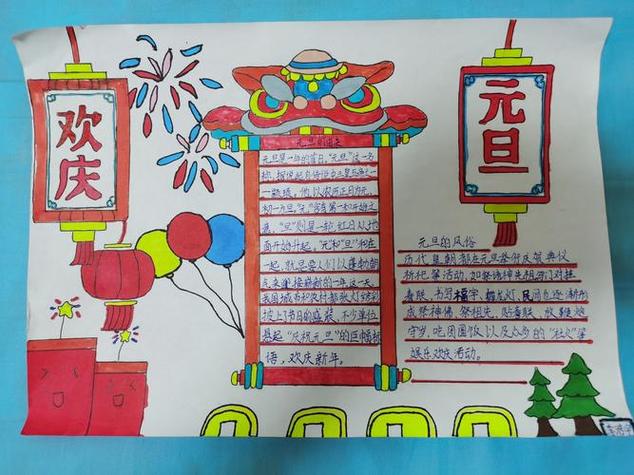 欢庆
元旦
元旦的由来
元旦是一年的首日,"元旦"这一名
称,据说起自传说中三皇五帝之
一颛顼,他以农历正月为元,
初一为旦。"元"有第一和开始之
意,"旦"则是一轮红日从地
面开始升起,"元"和"旦"和在
一起,就是要人们以蓬勃朝
气来迎接崭新的一年这一天
我国城市和农村都张灯结彩
披上了节日的盛装,不少单位
悬起"庆祝元旦"的巨幅标
语,欢庆新年。
元旦的风俗
历代皇朝都在元旦举行庆贺典仪
祈祀等活动,如祭诸神先祖,写门对挂
春联,书写福字、舞龙灯,民间也逐渐形
成祭神佛、祭祖先、贴春联、放鞭炮
守岁、吃团圆饭以及众多的"社火"等
娱乐欢庆活动。